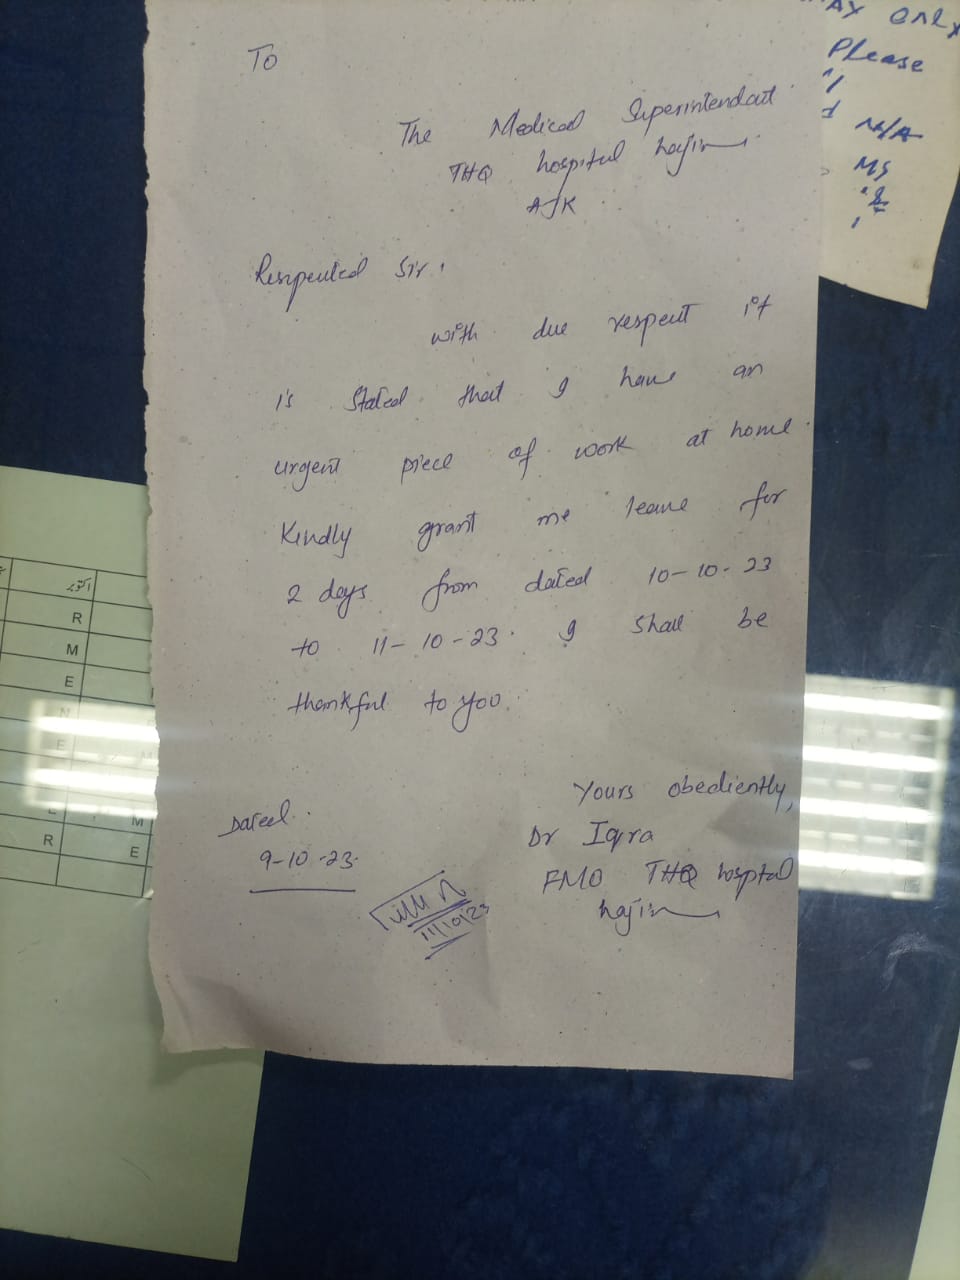 To
The Medical Superintendant
THQ hospital hajira
AJK
Respected Sir,
with due respect it
is stated that I have an
urgent piece of work at home.
Kindly grant me leave for
2 days from dated 10-10-23
to 11-10-23. I shall be
thankful to you.
Yours obediently,
Dr Iqra
FMO THQ hospital
hajira
Dated.
9-10-23.
11/10/23
only
Please
N/A
MS
R
M
E
N
E
M
R
E